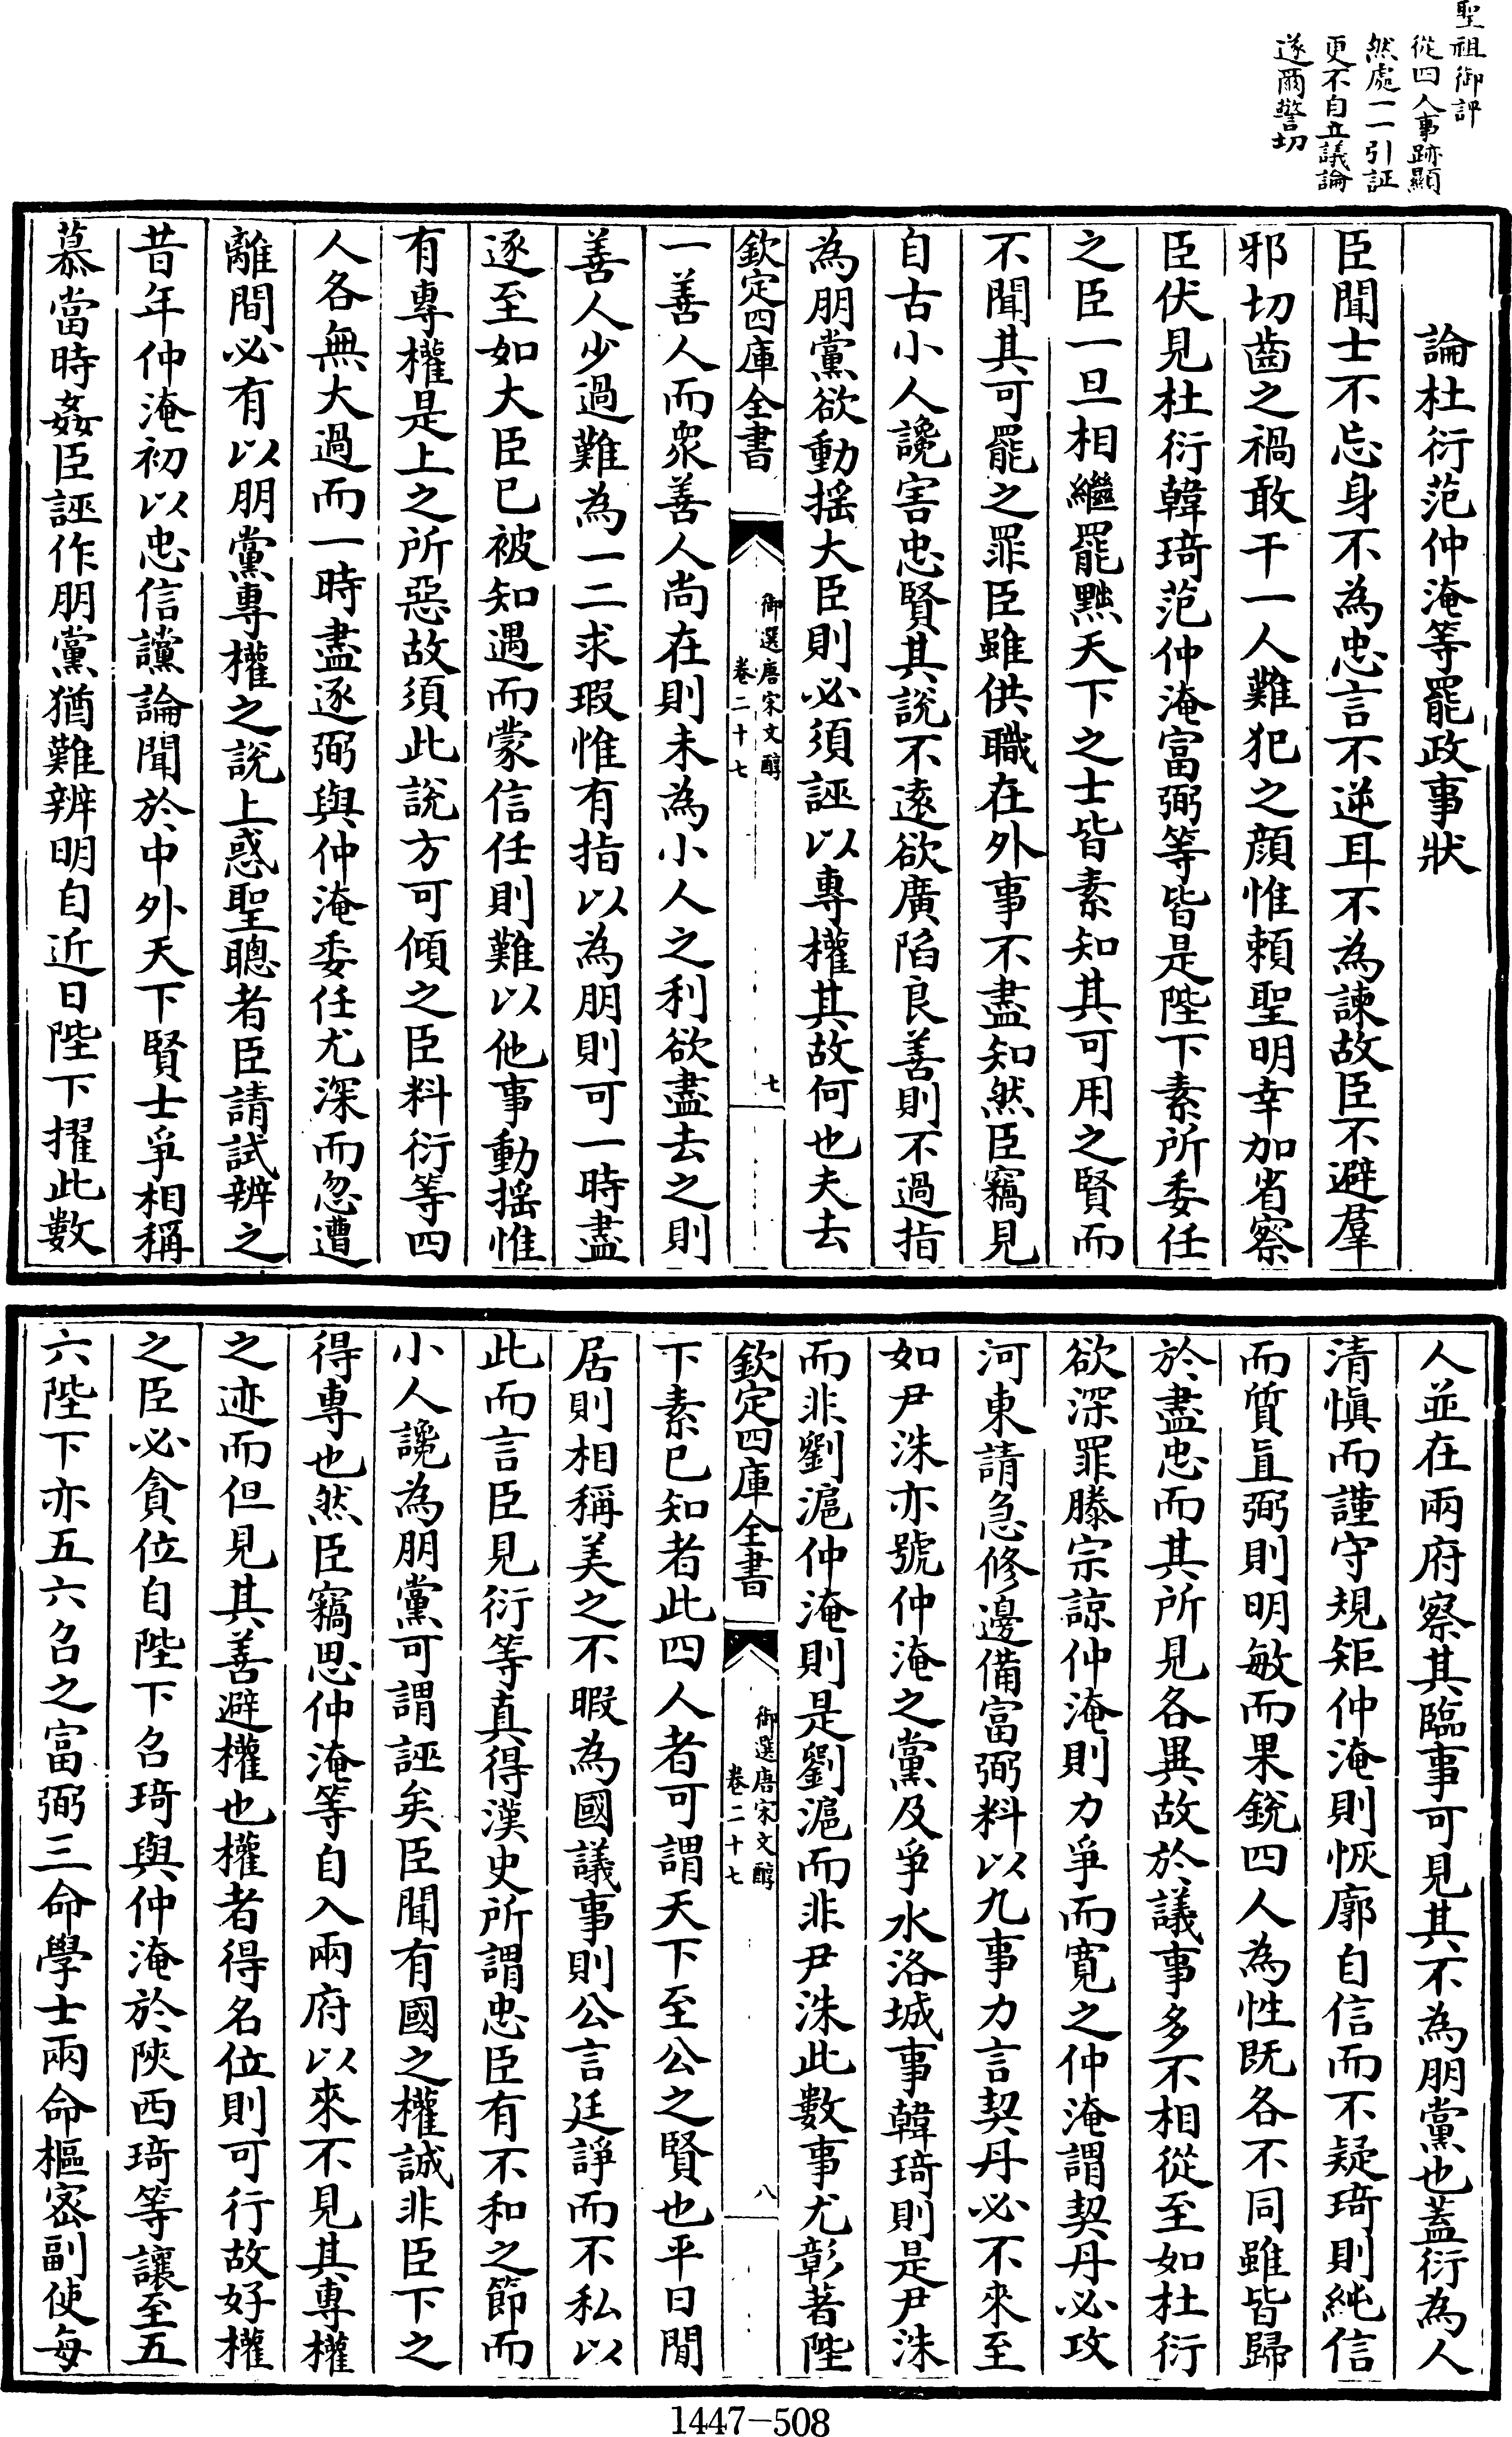 聖祖御評
從四人事跡顯
然處一一引証
更不自立議論
遂爾警切
論杜衍范仲淹等罷政事狀
臣聞士不忘身不為忠言不逆耳不為諫故臣不避羣
邪切齒之禍敢干一人難犯之顔惟頼聖明幸加省察
臣伏見杜衍韓琦范仲淹富弼等皆是陛下素所委任
之臣一旦相繼罷黜天下之士皆素知其可用之賢而
不聞其可罷之罪臣雖供職在外事不盡知然臣竊見
自古小人讒害忠賢其説不逺欲廣陷良善則不過指
為朋黨欲動揺大臣則必須誣以專權其故何也夫去
欽定四庫全書
御選唐宋文醇
卷二十七
七
一善人而衆善人尚在則未為小人之利欲盡去之則
善人少過難為一二求瑕惟有指以為朋則可一時盡
逐至如大臣已被知遇而蒙信任則難以他事動揺惟
有專權是上之所惡故須此説方可傾之臣料衍等四
人各無大過而一時盡逐弼與仲淹委任尤深而忽遭
離間必有以朋黨專權之説上惑聖聰者臣請試辨之
昔年仲淹初以忠信讜論聞於中外天下賢士爭相稱
慕當時姦臣誣作朋黨猶難辨明自近日陛下擢此數
人並在兩府察其臨事可見其不為朋黨也蓋衍為人
清愼而謹守規矩仲淹則恢廓自信而不疑琦則純信
而質直弼則明敏而果銳四人為性既各不同雖皆歸
於盡忠而其所見各異故於議事多不相從至如杜衍
欲深罪滕宗諒仲淹則力爭而寛之仲淹謂契丹必攻
河東請急修邊備富弼料以九事力言契丹必不來至
如尹洙亦號仲淹之黨及爭水洛城事韓琦則是尹洙
而非劉滬仲淹則是劉滬而非尹洙此數事尤彰著陛
欽定四庫全書
御選唐宋文醇
卷二十七
八
下素已知者此四人者可謂天下至公之賢也平日閒
居則相稱美之不暇為國議事則公言廷諍而不私以
此而言臣見衍等真得漢史所謂忠臣有不和之節而
小人讒為朋黨可謂誣矣臣聞有國之權誠非臣下之
得專也然臣竊思仲淹等自入兩府以來不見其專權
之迹而但見其善避權也權者得名位則可行故好權
之臣必貪位自陛下召琦與仲淹於陝西琦等讓至五
六陛下亦五六召之富弼三命學士兩命樞宻副使每
1447-508